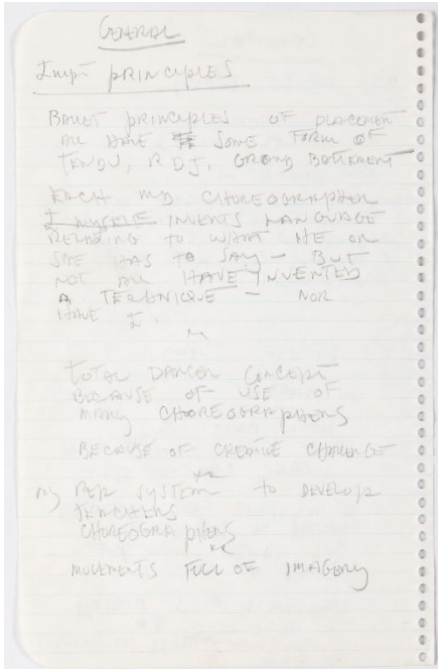 GENERAL
Impt PRINCIPLES
BALLET PRINCIPLES OF PLACEMENT
ALL HAVE SOME FORM OF
TENDU, R DJ, GRAND BATTEMENT
EACH MD CHOREOGRAPHER
INVENTS LANGUAGE
RELATING TO WHAT HE OR
SHE HAS TO SAY - BUT
NOT ALL HAVE INVENTED
A TECHNIQUE - NOR
HAVE I.
TOTAL DANCER CONCEPT
BECAUSE OF USE OF
MANY CHOREOGRAPHERS
BECAUSE OF CREATIVE CHALLENGE
My REP SYSTEM TO DEVELOP
TEACHERS
CHOREOGRAPHERS
MOVEMENTS FULL OF IMAGERY